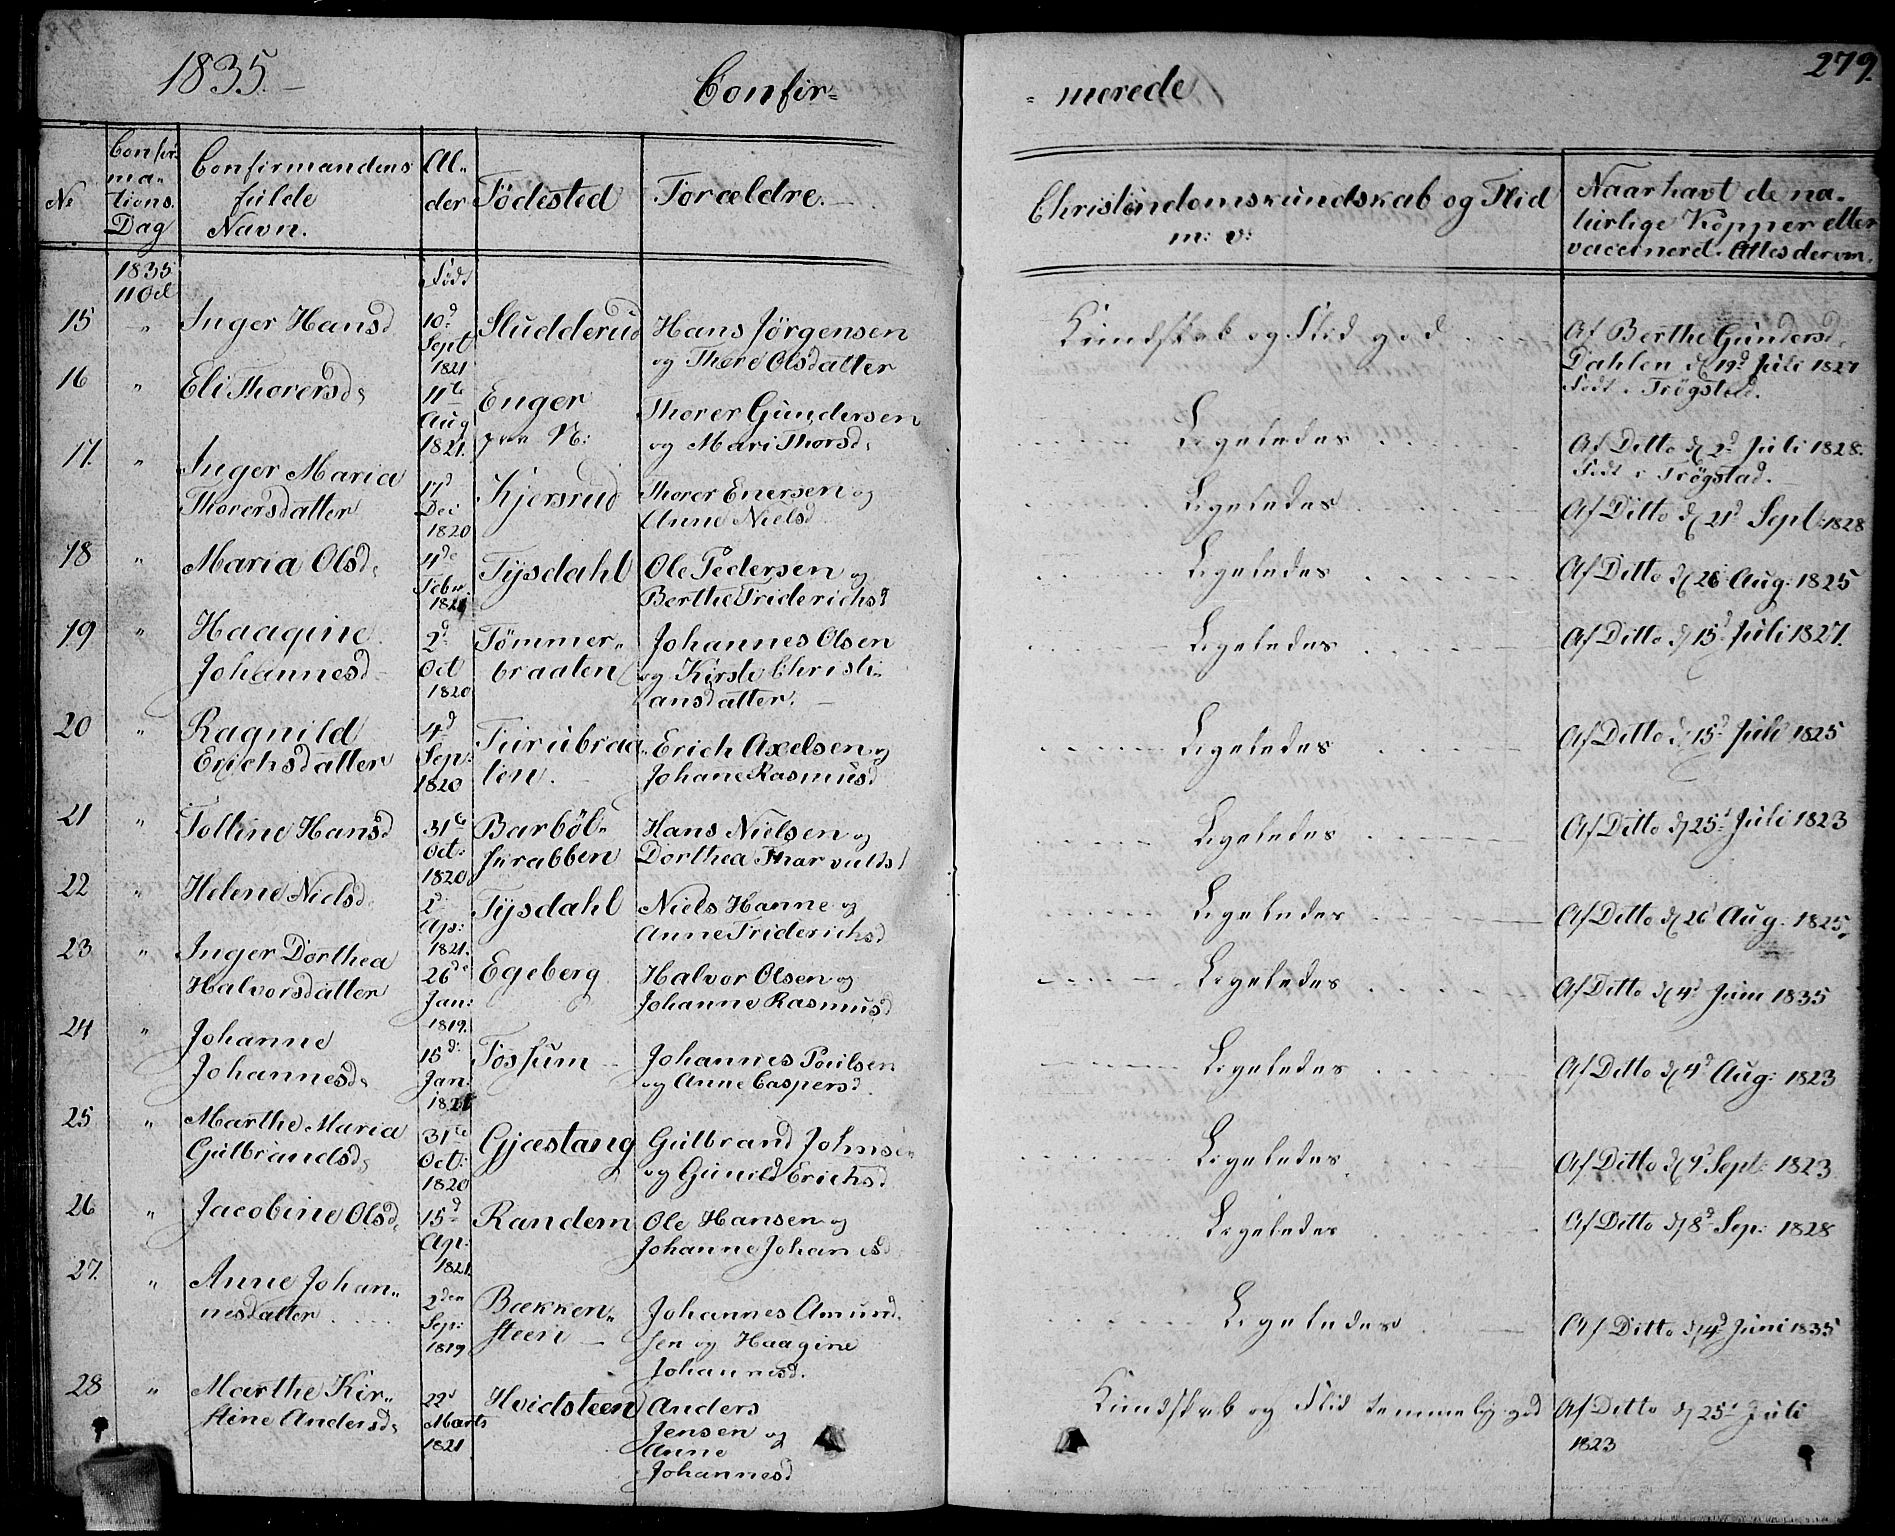 1835.
Confir-
- merede
279.
No
Confir-
ma-
tions.
Dag
Confirmandens
fulde
Navn.
Al-
der
Födested
Forældre.
Christendomskundskab og Flid
m: v:
Naar havt de na-
turlige Kopper eller
vaccinerd. Attest derom.
1835
11 Oct
Födt
15 " Inger Hansd
10d
Sept
1821
Studderud
Hans Jörgensen
og Thore Olsdatter
Kundskab og Flid god
Af Berthe Gundersd.
Dahlen d 19d Juli 1827
Födt i Trögstad.
16 " Eli Thorersd.
11te
Aug
1821.
Enger
Thorer Gundersen
og Mari Thorsd.
Ligeledes
Af Ditto d 2d Juli 1828.
Födt i Trögstad.
17. " Inger Maria
Thorersdatter
17d
Dec
1820
Kjersrud
Thorer Enersen og
Anne Nielsd
Ligeledes
Af Ditto d 21d Sept 1828
18 " Maria Olsd.
Febr:
1821
Tysdahl
Ole Pedersen og
Berthe Friderichsd
Ligeledes
Af Ditto d 26 Aug: 1825
19 " Haagine
Johannesd
2d
Oct
1820
Tömmer-
braaten
Johannes Olsen
og Kirsti Christi-
ansdatter.
Ligeledes
Af Ditto d 15d Juli 1827.
20 " Ragnild
Erichsdatter
4d
Sep:
1820
Furubraa-
ten.
Erich Axelsen og
Johane Rasmusd
Ligeledes
Af Ditto d 15d Juli 1825
21 " Tolline Hansd
31te
Oct:
1820
Barböl-
Hans Nielsen og
Dorthea Tharvaldsd
Ligeledes
Af Ditto d 25d Juli 1823
22 " Helene Nielsd.
2d
Ap:
1821.
Tysdahl
Niels Hanne og
Anne Friderichsd
Ligeledes
Af Ditto d 26 Aug. 1825.
23 " Inger Dorthea
Halvorsdatter
26de
Jan:
1819.
Egeberg
Halvor Olsen og
Johanne Rasmusd
Ligeledes
Af Ditto d 4d Juni 1835
24 " Johanne
Johannesd.
15d:
Jan:
1821
Fossum
Johannes Poulsen
og Anne Caspersd.
Ligeledes
Af Ditto d 4d Aug: 1823
25 " Marthe Maria
Gulbrandsd.
31te
Oct:
1820
Gjæstang
Gulbrand Johnsen
og Gunild Erichsd
Ligeledes
Af Ditto d 9d Sept: 1823
26 " Jacobine Olsd.
15d
Ap:
1821.
Randem
Ole Hansen og
Johanne Johanesd
Ligeledes
Af Ditto d 8d Sep: 1828
27. " Anne Johan-
nesdatter
2den
Sep:
1819
Bækken-
steen
Johannes Amund-
sen og Haagine
Johannesd.
Ligeledes
Af Ditto d 4d Juni 1835
28 " Marthe Kir-
stine Andersd.
22d
Marts
1821
Hvidsteen
Anders
Jensen og
Anne
Johannesd
Kundskab og Flid temmelig god
Af Ditto d 25d Juli
1823